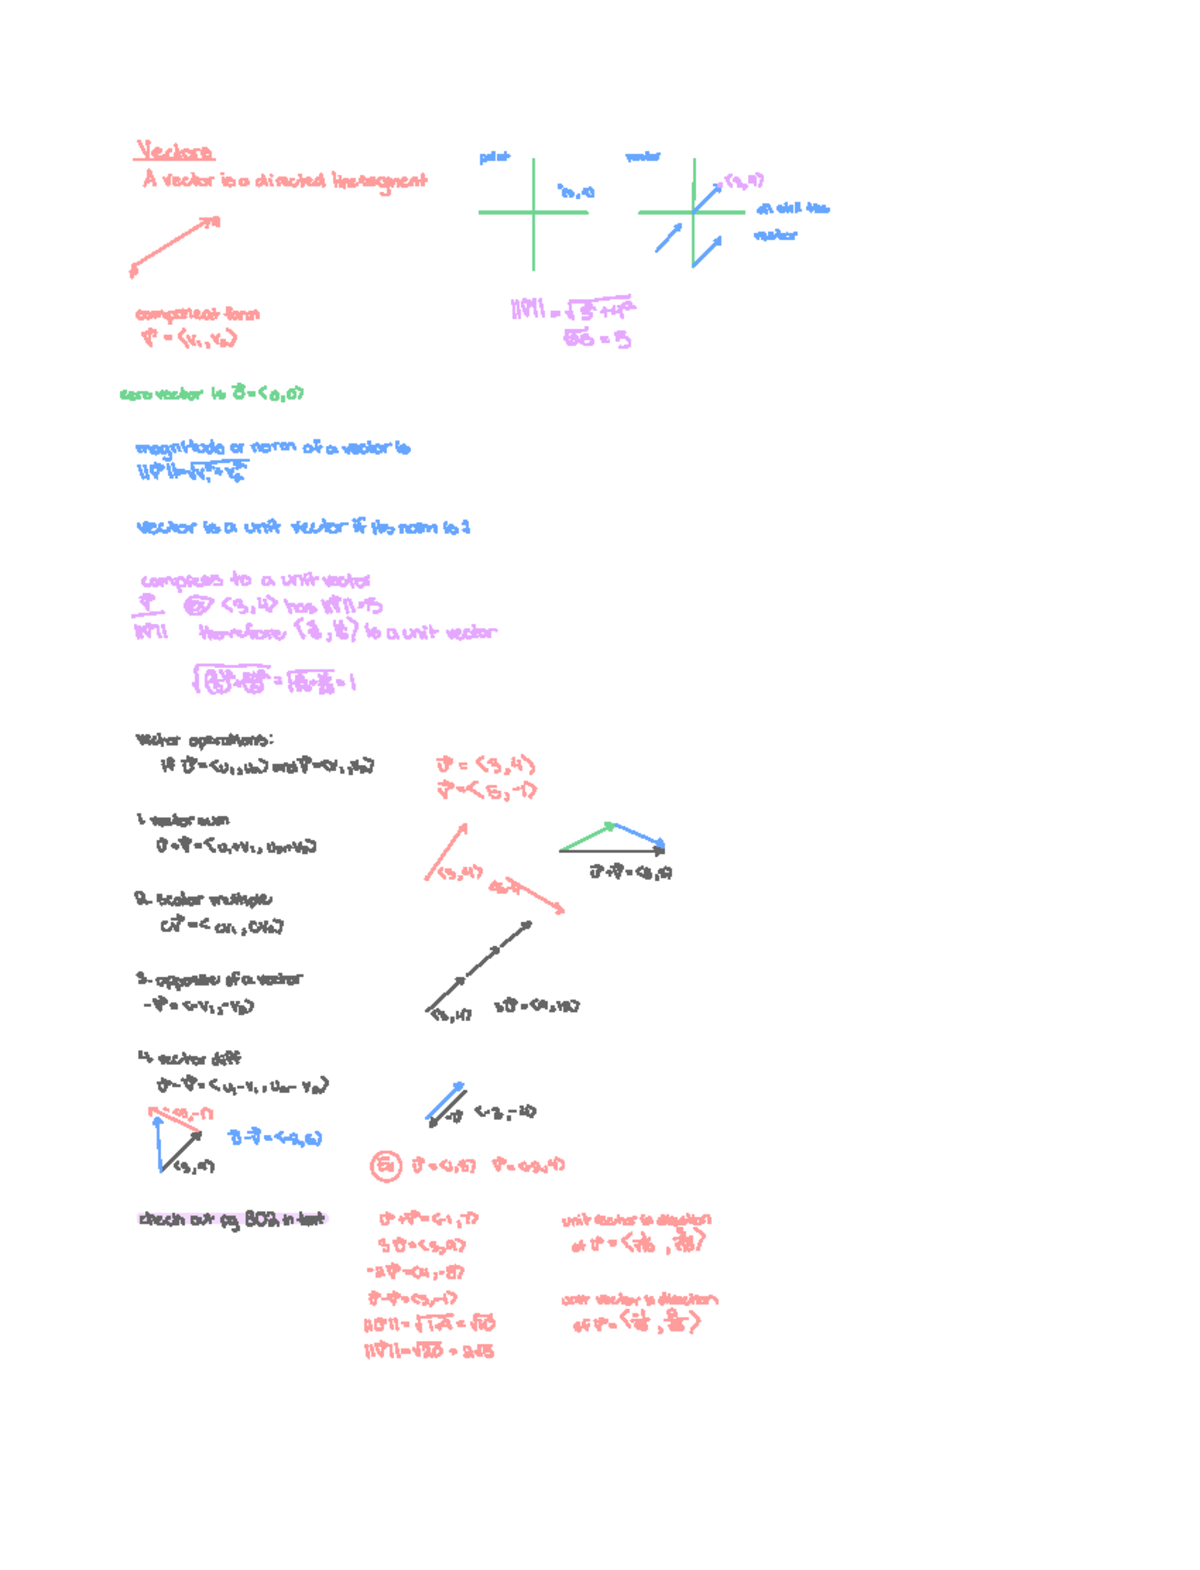 Vectors
A vector is a directed line segment
point
vector
(3,4)
⟨3,4⟩
all still the
vector
component form
v⃗ = ⟨v₁, v₂⟩
||v⃗|| = √3²+4²
√25 = 5
zero vector is 0⃗ = ⟨0,0⟩
magnitude or norm of a vector is
||v⃗|| = √v₁²+v₂²
vector is a unit vector if its norm is 1
compress to a unit vector
v⃗/||v⃗|| ex ⟨3,4⟩ has ||v⃗||=5
therefore ⟨3/5, 4/5⟩ is a unit vector
√(3/5)²+(4/5)² = √9/25+16/25 = 1
vector operations:
if u⃗=⟨u₁,u₂⟩ and v⃗=⟨v₁,v₂⟩
u⃗ = ⟨3,4⟩
v⃗ = ⟨5,-1⟩
1. vector sum
u⃗+v⃗=⟨u₁+v₁, u₂+v₂⟩
⟨3,4⟩
u⃗+v⃗=⟨8,3⟩
2. scalar multiple
cv⃗ = ⟨cv₁, cv₂⟩
3. opposite of a vector
-v⃗ = ⟨-v₁,-v₂⟩
⟨3,4⟩
3u⃗=⟨9,12⟩
4. vector diff
u⃗-v⃗=⟨u₁-v₁, u₂-v₂⟩
-v⃗
u⃗-v⃗=⟨-2,5⟩
⟨3,4⟩
Ex u⃗=⟨1,3⟩ v⃗=⟨-2,4⟩
check out pg 802 in text
u⃗+v⃗=⟨-1,7⟩
3u⃗=⟨3,9⟩
-2v⃗=⟨4,-8⟩
u⃗-v⃗=⟨3,-1⟩
||u⃗||=√1+9=√10
||v⃗||=√20=2√5
unit vector in direction
of u⃗=⟨1/√10, 3/√10⟩
unit vector in direction
of v⃗=